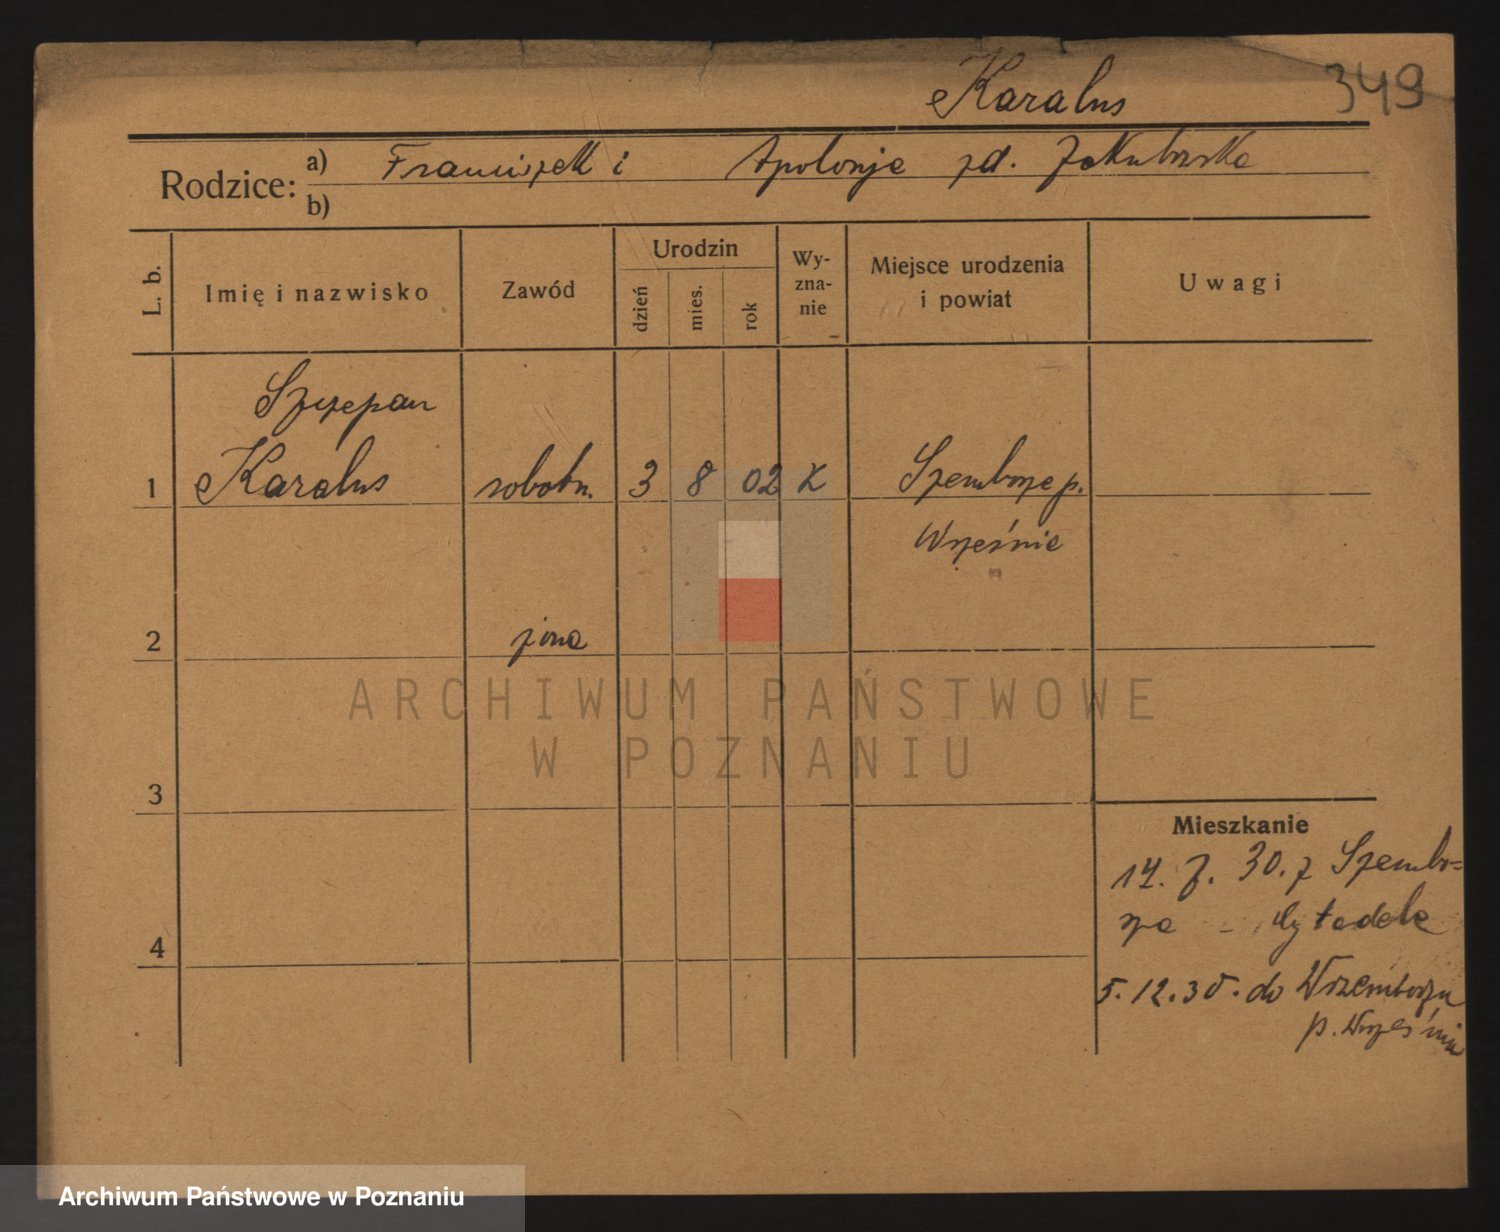 Karalus 349
Rodzice: a) Franciszek i Apolonja zd. Jakubowska
b)
L. b. Imię i nazwisko Zawód Urodzin dzień mies. rok Wy-zna-nie Miejsce urodzenia i powiat Uwagi
Szczepan
1 Karalus robotn. 3 8 02 k Szemborze p.
Wrześnie
2 żona
ARCHIWUM PAŃSTWOWE
W POZNANIU
3
Mieszkanie
14. 7. 30. z Szembo=
rza - Cytadela
4
5. 12. 30. do
p. Wrześnie
Archiwum Państwowe w Poznaniu